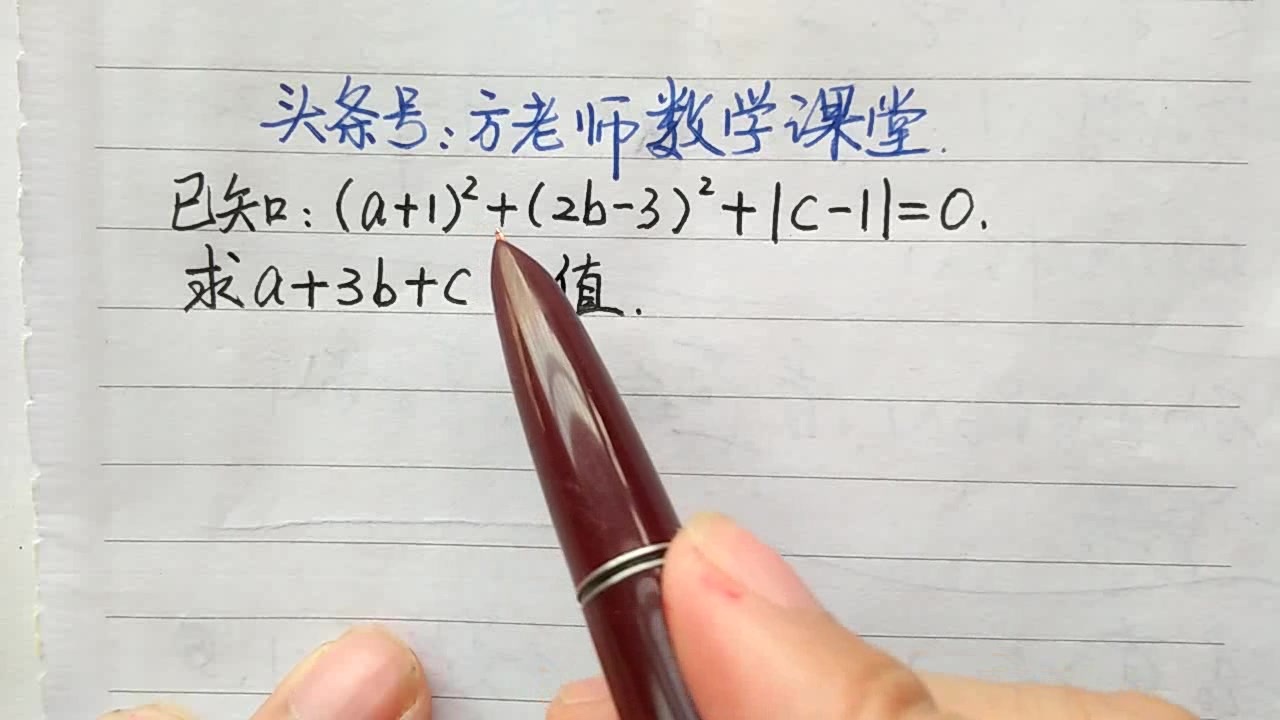 头条号:方老师数学课堂.
已知:(a+1)²+(2b-3)²+|c-1|=0.
求a+3b+c 值.